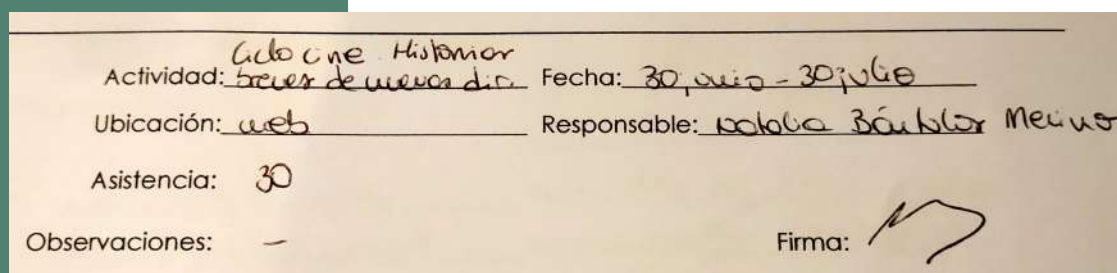 Ciclo cine Historias
Actividad: breves de nuevos dir. Fecha: 30 junio - 30 julio
Ubicación: web Responsable: Natalia Merino
Asistencia: 30
Observaciones: - Firma: